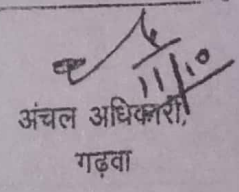 11/10
अंचल अधिकारी,
गढ़वा